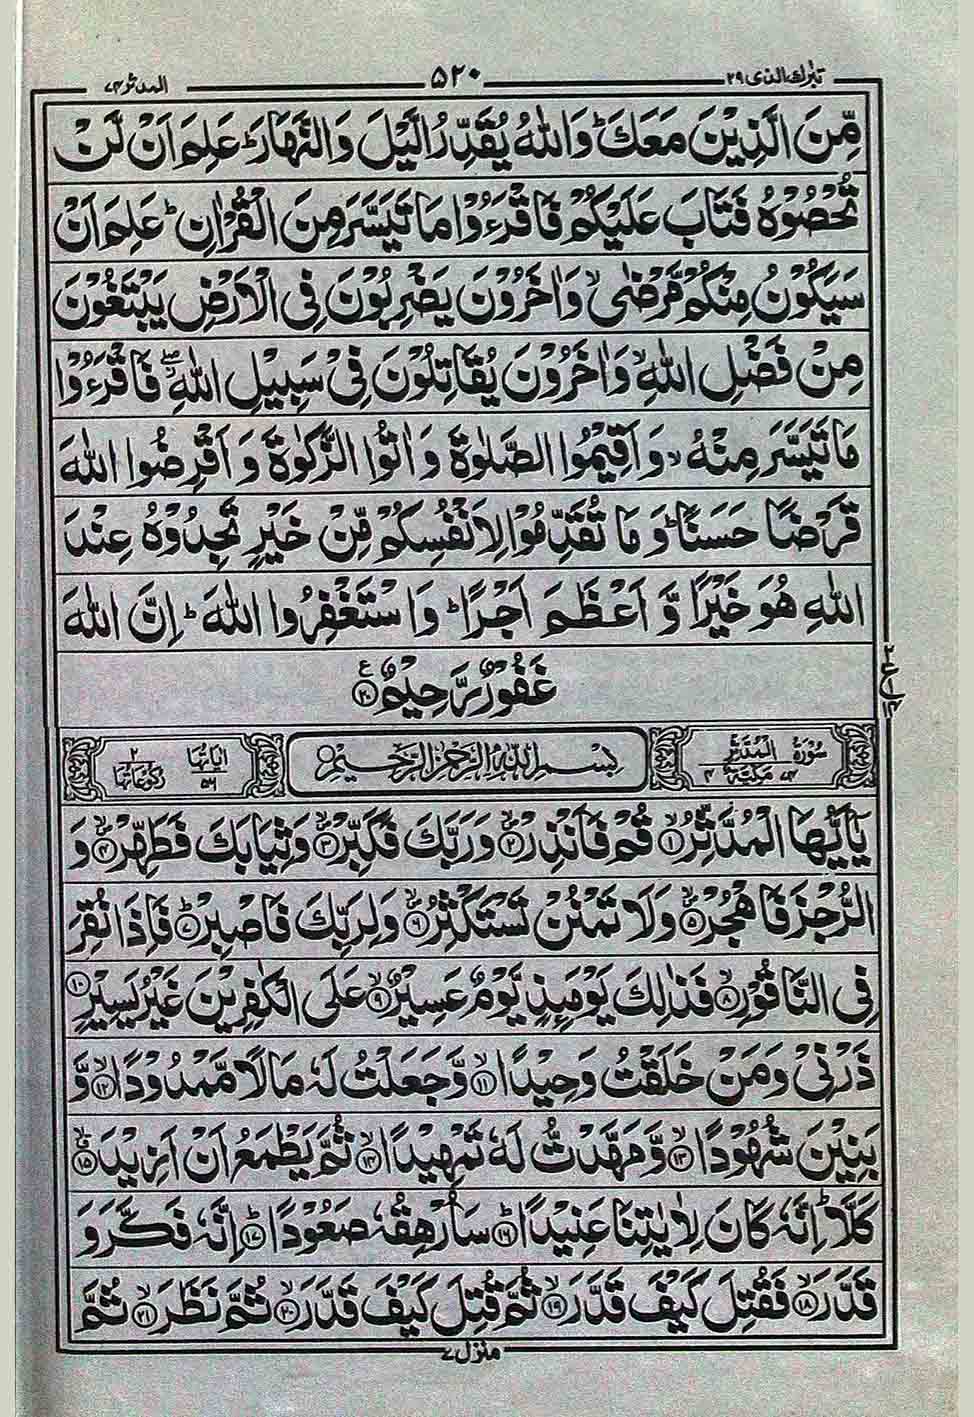 تبٰرك الذی ٢٩
۵۲۰
المدثر ۷۴
مِّنَ الَّذِيْنَ مَعَكَ ؕ وَاللّٰهُ يُقَدِّرُ الَّيْلَ وَالنَّهَارَ ؕ عَلِمَ اَنْ لَّنْ
تُحْصُوْهُ فَتَابَ عَلَيْكُمْ فَاقْرَءُوْا مَا تَيَسَّرَ مِنَ الْقُرْاٰنِ ؕ عَلِمَ اَنْ
سَيَكُوْنُ مِنْكُمْ مَّرْضٰى ۙ وَاٰخَرُوْنَ يَضْرِبُوْنَ فِى الْاَرْضِ يَبْتَغُوْنَ
مِنْ فَضْلِ اللّٰهِ ۙ وَاٰخَرُوْنَ يُقَاتِلُوْنَ فِىْ سَبِيْلِ اللّٰهِ ۖ فَاقْرَءُوْا
مَا تَيَسَّرَ مِنْهُ ۙ وَاَقِيْمُوا الصَّلٰوةَ وَاٰتُوا الزَّكٰوةَ وَاَقْرِضُوا اللّٰهَ
قَرْضًا حَسَنًا ؕ وَمَا تُقَدِّمُوْا لِاَنْفُسِكُمْ مِّنْ خَيْرٍ تَجِدُوْهُ عِنْدَ
اللّٰهِ هُوَ خَيْرًا وَّاَعْظَمَ اَجْرًا ؕ وَاسْتَغْفِرُوا اللّٰهَ ؕ اِنَّ اللّٰهَ
غَفُوْرٌ رَّحِيْمٌ ﴿۲۰﴾ ع
سُوْرَةُ الْمُدَّثِّرِ مَكِّيَّةٌ ۷۴ ۴
بِسْمِ اللّٰهِ الرَّحْمٰنِ الرَّحِيْمِ
اٰيَاتُهَا ۵۶ رُكُوْعَاتُهَا ۲
يٰۤاَيُّهَا الْمُدَّثِّرُ ۙ﴿۱﴾ قُمْ فَاَنْذِرْ ۙ﴿۲﴾ وَرَبَّكَ فَكَبِّرْ ۙ﴿۳﴾ وَثِيَابَكَ فَطَهِّرْ ۙ﴿۴﴾ وَ
الرُّجْزَ فَاهْجُرْ ۙ﴿۵﴾ وَلَا تَمْنُنْ تَسْتَكْثِرُ ۙ﴿۶﴾ وَلِرَبِّكَ فَاصْبِرْ ؕ﴿۷﴾ فَاِذَا نُقِرَ
فِى النَّاقُوْرِ ۙ﴿۸﴾ فَذٰلِكَ يَوْمَئِذٍ يَّوْمٌ عَسِيْرٌ ۙ﴿۹﴾ عَلَى الْكٰفِرِيْنَ غَيْرُ يَسِيْرٍ ﴿۱۰﴾
ذَرْنِىْ وَمَنْ خَلَقْتُ وَحِيْدًا ۙ﴿۱۱﴾ وَّجَعَلْتُ لَهٗ مَالًا مَّمْدُوْدًا ۙ﴿۱۲﴾ وَّ
بَنِيْنَ شُهُوْدًا ۙ﴿۱۳﴾ وَّمَهَّدْتُّ لَهٗ تَمْهِيْدًا ۙ﴿۱۴﴾ ثُمَّ يَطْمَعُ اَنْ اَزِيْدَ ۙ﴿۱۵﴾
كَلَّا ؕ اِنَّهٗ كَانَ لِاٰيٰتِنَا عَنِيْدًا ؕ﴿۱۶﴾ سَاُرْهِقُهٗ صَعُوْدًا ؕ﴿۱۷﴾ اِنَّهٗ فَكَّرَ وَ
قَدَّرَ ۙ﴿۱۸﴾ فَقُتِلَ كَيْفَ قَدَّرَ ۙ﴿۱۹﴾ ثُمَّ قُتِلَ كَيْفَ قَدَّرَ ۙ﴿۲۰﴾ ثُمَّ نَظَرَ ۙ﴿۲۱﴾ ثُمَّ
منزل ۷